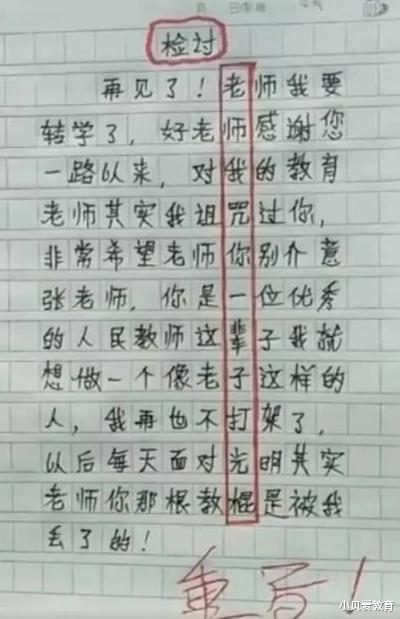 检讨
再见了！老师我要
转学了，好老师感谢您
一路以来，对我的教育
老师其实我诅咒过你，
非常希望老师你别介意
张老师，你是一位优秀
的人民教师这辈子我就
想做一个像老子这样的
人，我再也不打架了，
以后每天面对光明其实
老师你那根教棍是被我
丢了的！
重写！
小贝爱教育